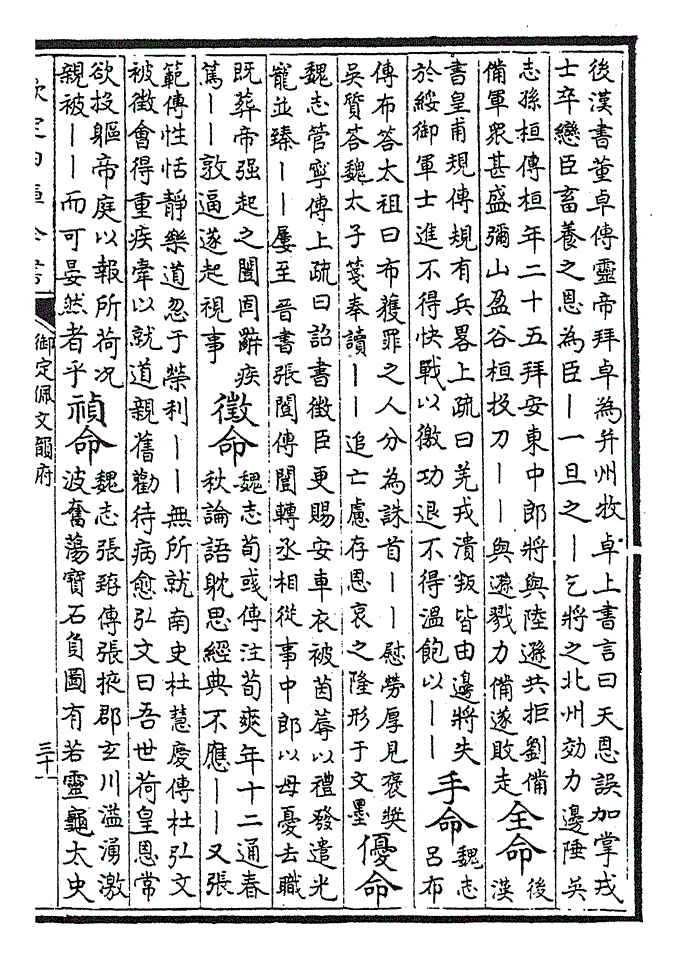 後漢書董卓傳靈帝拜卓為并州牧卓上書言曰天恩誤加掌戎
士卒戀臣畜養之恩為臣丨一旦之丨乞將之北州効力邊陲吳
志孫桓傳桓年二十五拜安東中郎將與陸遜共拒劉備
備軍衆甚盛彌山盈谷桓投刀丨丨與遜戮力備遂敗走
全命
後
漢
書皇甫規傳規有兵畧上疏曰羌戎潰叛皆由邊將失
於綏御軍士進不得快戰以徼功退不得溫飽以丨丨
手命
魏志
呂布
傳布答太祖曰布獲罪之人分為誅首丨丨慰勞厚見褒奬
吳質答魏太子箋奉讀丨丨追亡慮存恩哀之隆形于文墨
優命
魏志管寧傳上疏曰詔書徵臣更賜安車衣被茵蓐以禮發遣光
寵並臻丨丨屢至晉書張闓傳闓轉丞相從事中郎以母憂去職
既葬帝强起之闓固辭疾
篤丨丨敦逼遂起視事
徵命
魏志荀彧傳注荀爽年十二通春
秋論語躭思經典不應丨丨又張
範傳性恬靜樂道忽于榮利丨丨無所就南史杜慧慶傳杜弘文
被徵會得重疾牽以就道親舊勸待病愈弘文曰吾世荷皇恩常
欲投軀帝庭以報所荷况
親被丨丨而可晏然者乎
禎命
魏志張臶傳張掖郡玄川溢湧激
波奮蕩寶石負圖有若靈龜太史
欽定四庫全書
御定佩文韻府
三十一